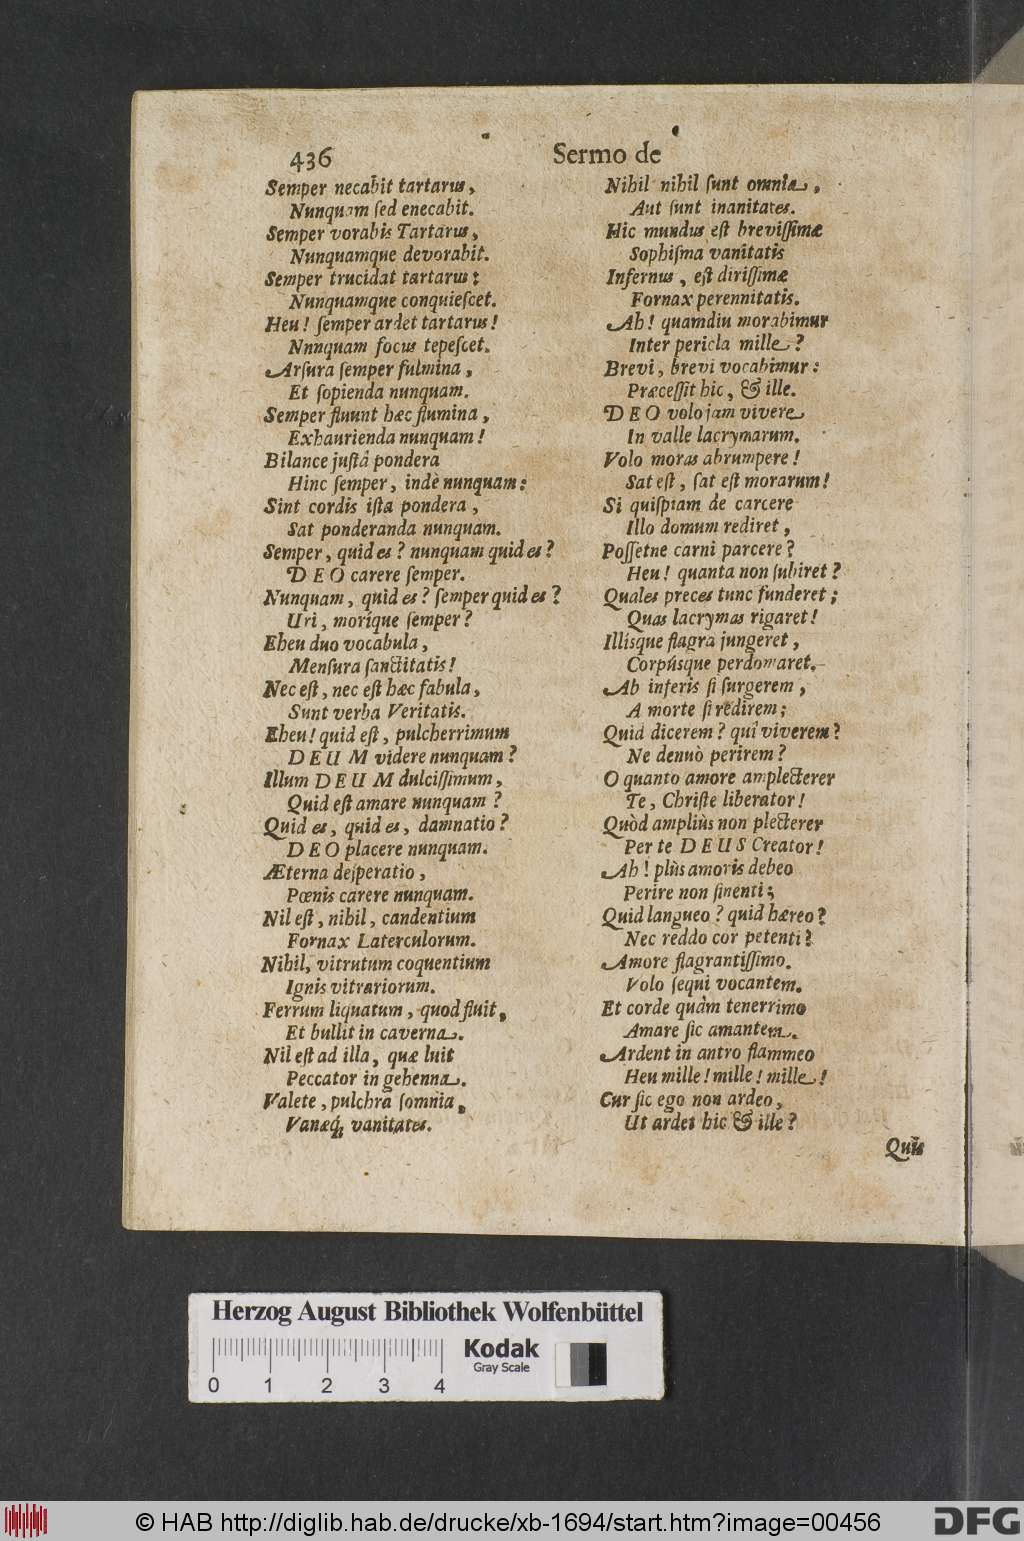 436
Sermo de
Semper necabit tartarus,
Nunquam ſed enecabit.
Semper vorabis Tartarus,
Nunquamque devorabit.
Semper trucidat tartarus:
Nunquamque conquieſcet.
Heu! ſemper ardet tartarus!
Nnnquam focus tepeſcet.
Arſura ſemper fulmina,
Et ſopienda nunquam.
Semper fluunt hæc flumina,
Exhaurienda nunquam!
Bilance juſtâ pondera
Hinc ſemper, indè nunquam:
Sint cordis iſta pondera,
Sat ponderanda nunquam.
Semper, quid es? nunquam quid es?
DEO carere ſemper.
Nunquam, quid es? ſemper quid es?
Uri, morique ſemper?
Eheu duo vocabula,
Menſura ſanctitatis!
Nec eſt, nec eſt hæc fabula,
Sunt verba Veritatis.
Eheu! quid eſt, pulcherrimum
DEUM videre nunquam?
Illum DEUM dulciſſimum,
Quid eſt amare nunquam?
Quid es, quid es, damnatio?
DEO placere nunquam.
Æterna deſperatio,
Pœnis carere nunquam.
Nil eſt, nihil, candentium
Fornax Laterculorum.
Nihil, vitrutum coquentium
Ignis vitrariorum.
Ferrum liquatum, quod fluit,
Et bullit in caverna.
Nil eſt ad illa, quæ luit
Peccator in gehenna.
Valete, pulchra ſomnia,
Vanæq; vanitates.
Nihil nihil ſunt omnia,
Aut ſunt inanitates.
Hic mundus eſt breviſſimæ
Sophiſma vanitatis
Infernus, eſt diriſſimæ
Fornax perennitatis.
Ah! quamdiu morabimur
Inter pericla mille?
Brevi, brevi vocabimur:
Præceſſit hic, & ille.
DEO volo jam vivere
In valle lacrymarum.
Volo moras abrumpere!
Sat eſt, ſat eſt morarum!
Si quiſpiam de carcere
Illo domum rediret,
Poſſetne carni parcere?
Heu! quanta non ſubiret?
Quales preces tunc funderet;
Quas lacrymas rigaret!
Illisque flagra jungeret,
Corpúsque perdomaret.
Ab inferis ſi ſurgerem,
A morte ſi redirem;
Quid dicerem? quî viverem?
Ne denuò perirem?
O quanto amore amplecterer
Te, Chriſte liberator!
Quòd ampliùs non plecterer
Per te DEUS Creator!
Ah! plùs amoris debeo
Perire non ſinenti;
Quid langueo? quid hæreo?
Nec reddo cor petenti?
Amore flagrantiſſimo.
Volo ſequi vocantem.
Et corde quàm tenerrimo
Amare ſic amantem.
Ardent in antro flammeo
Heu mille! mille! mille!
Cur ſic ego non ardeo,
Ut ardet hic & ille?
Quis
Herzog August Bibliothek Wolfenbüttel
Kodak
Gray Scale
0 1 2 3 4
© HAB http://diglib.hab.de/drucke/xb-1694/start.htm?image=00456
DFG